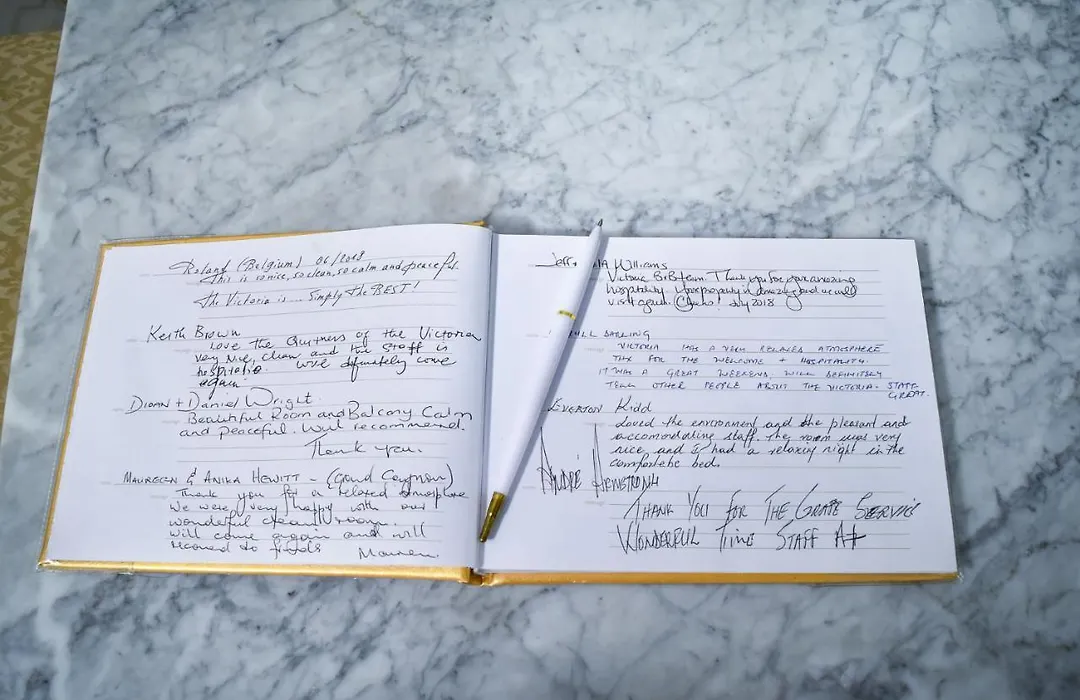 Roland (Belgium) 06/2018
This is so nice, so clean, so calm and peaceful.
The Victoria is ... Simply the BEST!
Keith Brown
Love the Quitness of the Victorian
very nice, clean and the Staff is
hospitable. We'll definately come
again.
+ Daniel Wright.
Beautiful Room and Balcony Calm
and peaceful. Will recommend.
Thank you.
MAUREEN & ANIKA HEWITT -
Thank you for a relaxed
We were very happy with our
wonderful room.
will come again and will
to Maureen
Jeff Williams
Victoria BnB team Thank you for your amazing
hospitality. Your property is amazing and we will
visit again. July 2018
DARLING
VICTORIA HAS A VERY RELAXED ATMOSPHERE
THX FOR THE WELCOME + HOSPITALITY.
IT WAS A GREAT WEEKEND. WILL DEFINITELY
TELL OTHER PEOPLE ABOUT THE VICTORIA. STAFF
GREAT.
EVERTON Kidd
Loved the environment and the pleasant and
accomodating staff. The room was very
nice and I had a relaxing night in the
comfortable bed.
ANDRÉ ARMSTRONG
THANK YOU FOR THE GRATE SERVICE
WONDERFUL TIME STAFF A+